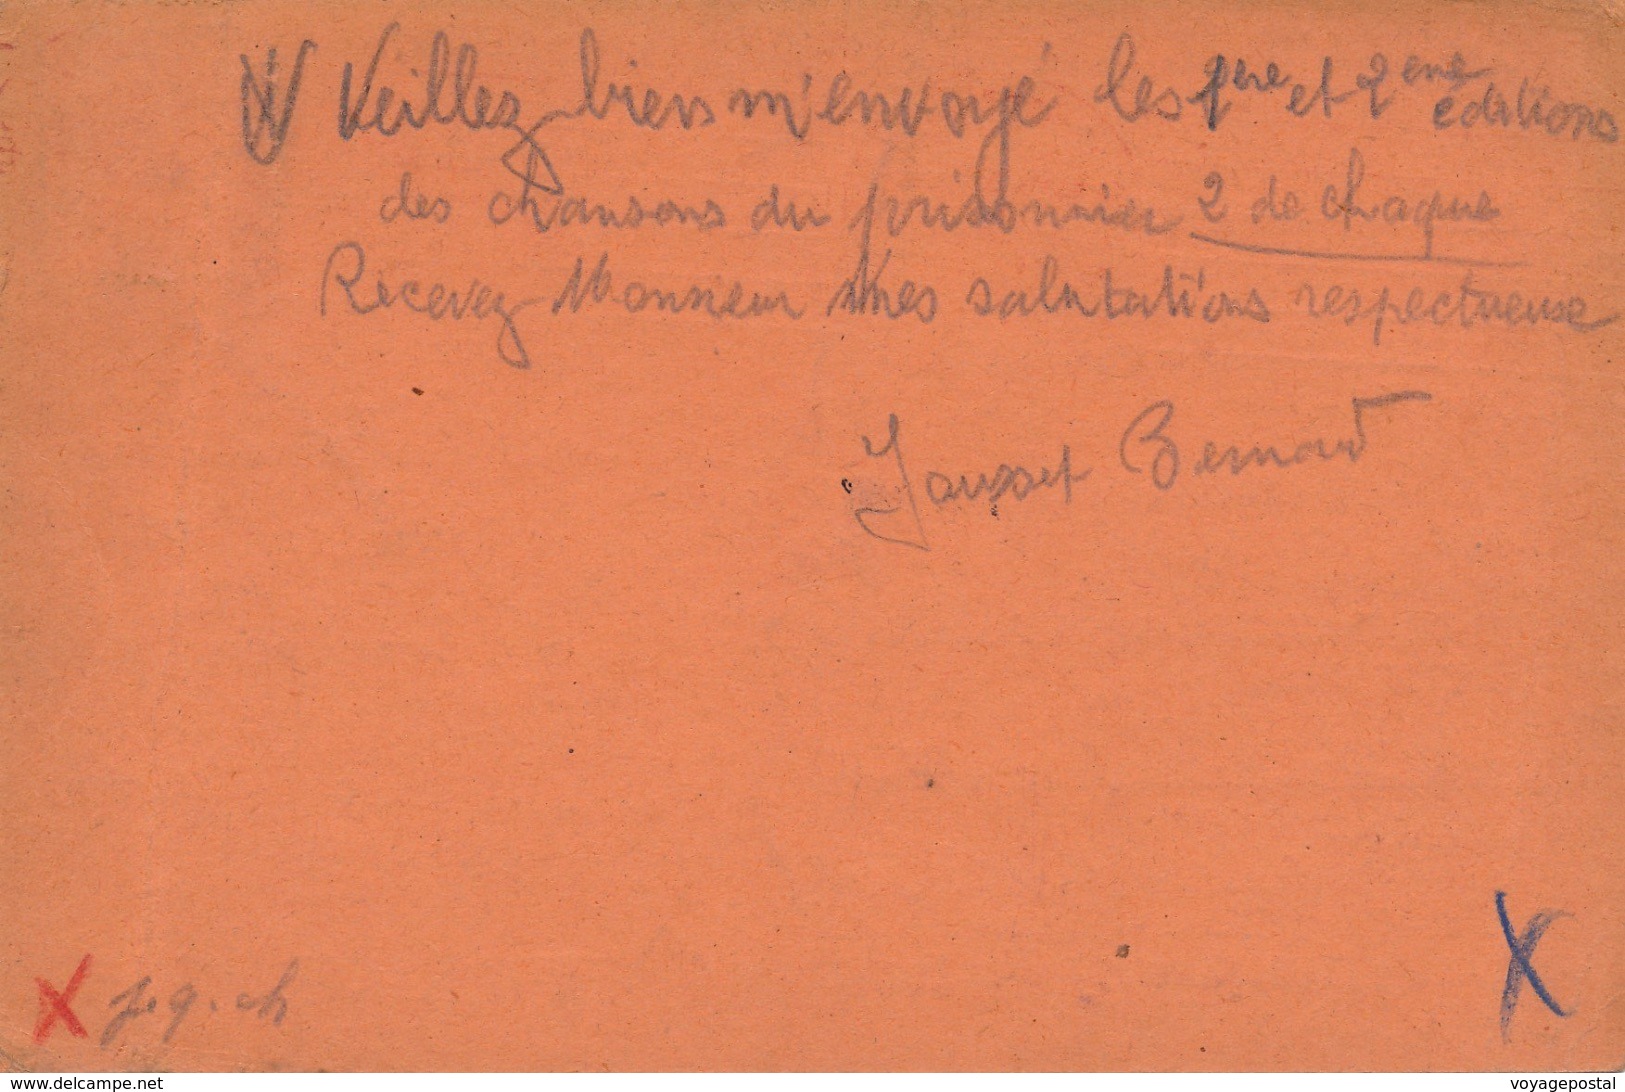 Veillez bien m'envoyé les 1ere et 2eme editions
des chansons du prisonnier 2 de chaque
Recevez Monsieur mes salutations respectueuse
Jausset Bernard
www.delcampe.net
voyagepostal